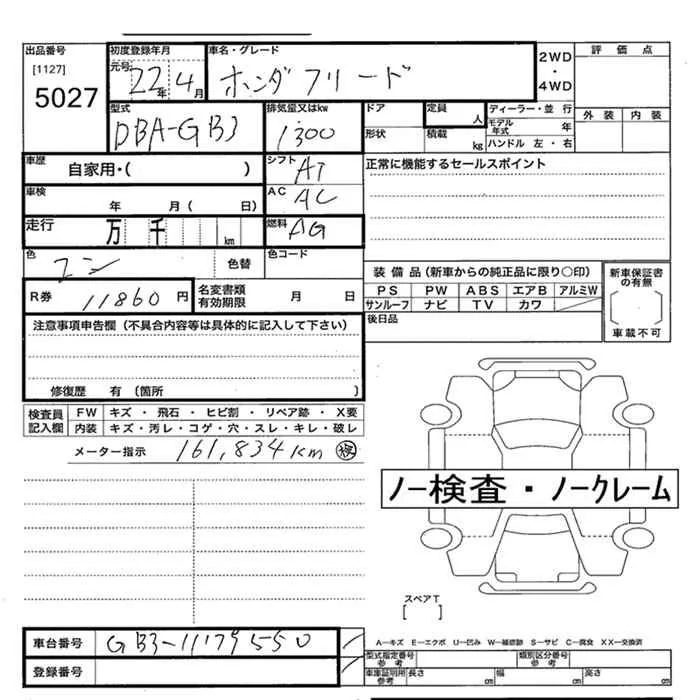 出品番号 初度登録年月 車名・グレード 2WD・4WD 評価点
[1127] 元号 22年 4月 ホンダ フリード
5027
型式 排気量又はkw ドア 定員 人 ディーラー・並行 外装 内装
DBA-GB3 1300 形状 積載 kg モデル年式 年
ハンドル 左・右
車歴 自家用・( ) シフト AT 正常に機能するセールスポイント
車検 年 月( 日) AC AC
走行 万 千 km 燃料 AG
色 色替 色コード
装備品(新車からの純正品に限り○印) 新車保証書の有無
R券 11860 円 名変書類有効期限 月 日 PS PW ABS エアB アルミW
サンルーフ ナビ TV カワ
注意事項申告欄(不具合内容等は具体的に記入して下さい) 後日品 車載不可
修復歴 有(箇所 )
検査員記入欄 FW キズ・飛石・ヒビ割・リペア跡・X要
内装 キズ・汚レ・コゲ・穴・スレ・キレ・破レ
メーター指示 161,834km 検
ノー検査・ノークレーム
スペアT
[ ]
車台番号 GB3-11179550 A−キズ E−エクボ U−凹み W−補修跡 S−サビ C−腐食 XX−交換済
型式指定番号参考 類別区分番号参考
登録番号 車庫証明用参考 長さ cm 幅 cm 高さ cm